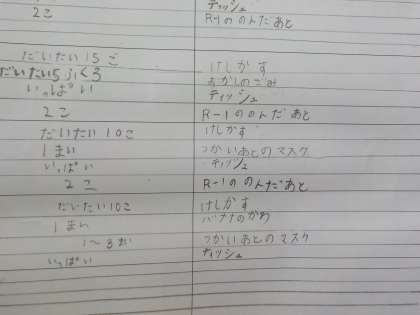 ティッシュ
2こ R-1ののんだあと
だいたい15こ けしかす
だいたい5ふくろ おかしのごみ
いっぱい ティッシュ
2こ R-1ののんだあと
だいたい10こ けしかす
1まい つかいあとのマスク
いっぱい ティッシュ
2こ R-1ののんだあと
だいたい10こ けしかす
1まい バナナのかわ
1〜3まい つかいあとのマスク
いっぱい ティッシュ